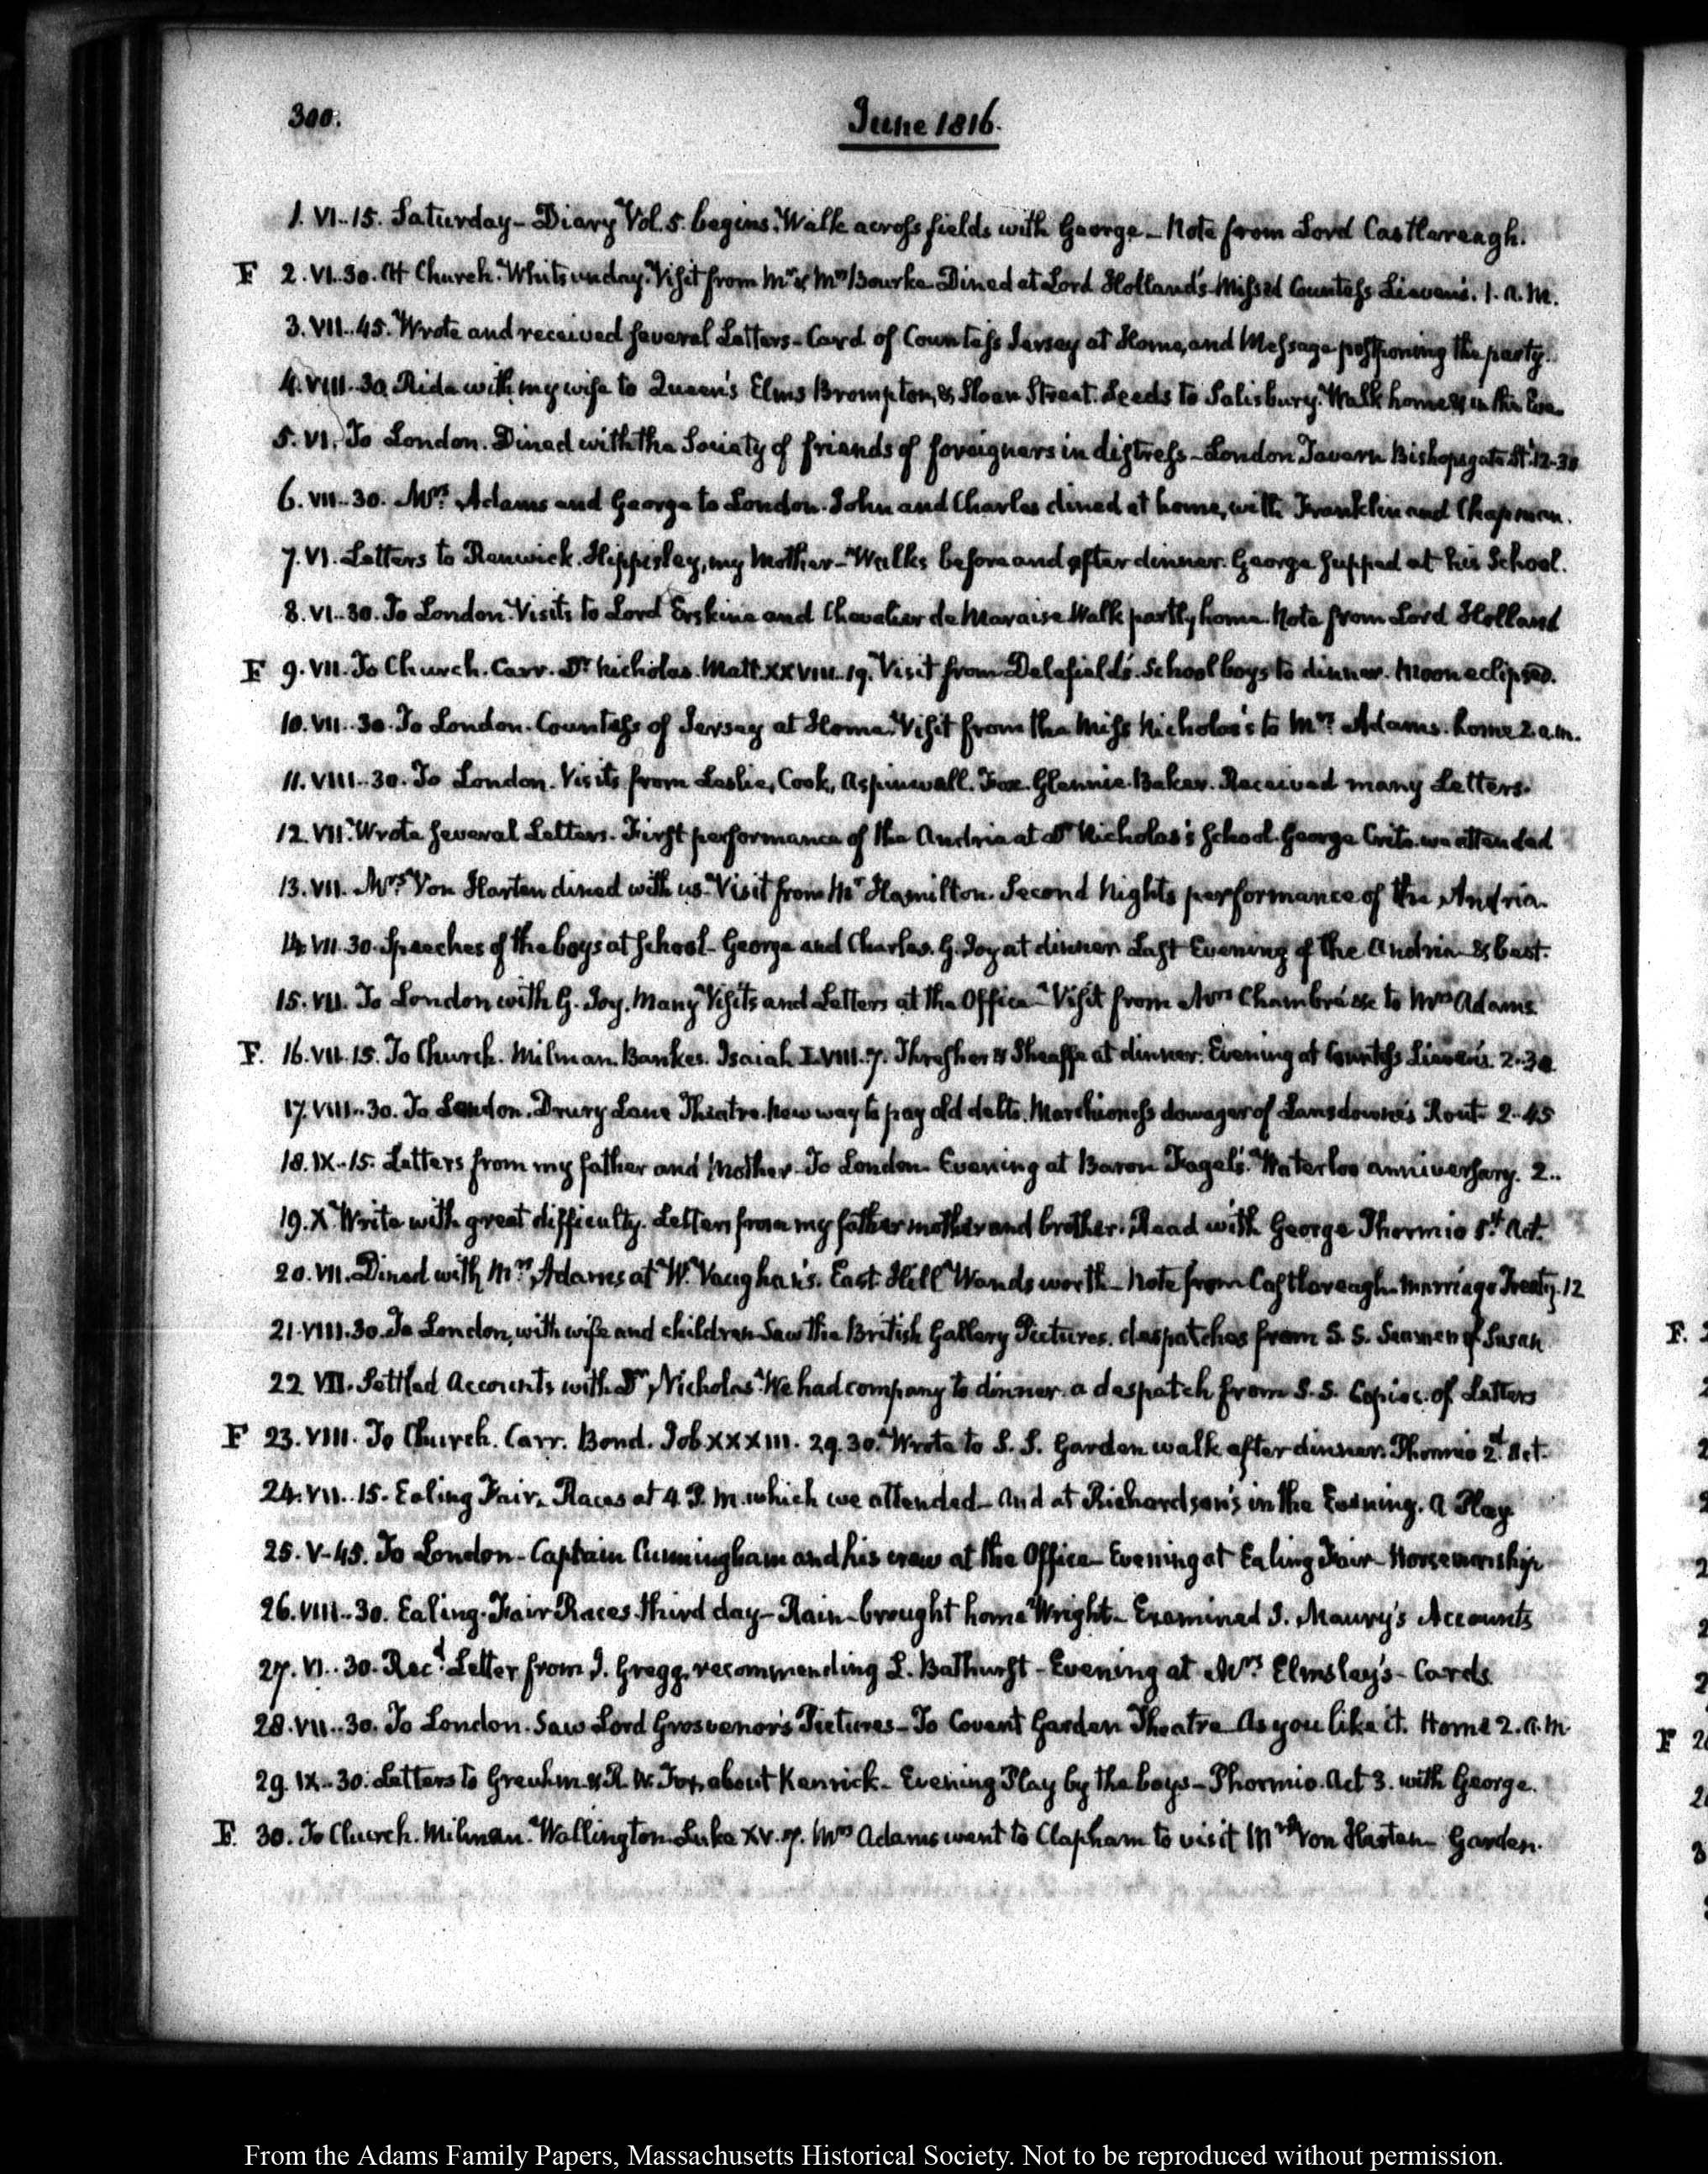 300.
June 1816.
1. VI..15. Saturday_ Diary Vol. 5. begins. Walk across fields with George_ Note from Lord Castlereagh.
F 2. VI..30. At Church. Whitsunday. Visit from Mr. & Mrs. Bourke. Dined at Lord Holland's. Missed Countess Lieven's. 1. A.M.
3. VII..45. Wrote and received several Letters_ Card of Countess Jersey at Home, and Message postponing the party.
4. VIII..30. Ride with my wife to Queen's Elms Brompton, & Sloan Street. Leeds to Salisbury. Walk home & in the Eve.
5. VI. To London. Dined with the Society of friends of foreigners in distress_ London Tavern Bishopsgate St. 12-30
6. VII..30. Mrs. Adams and George to London. John and Charles dined at home, with Franklin and Chapman.
7. VI. Letters to Renwick. Hippisley, my Mother_ Walks before and after dinner. George supped at his School.
8. VI..30. To London. Visits to Lord Erskine and Chevalier de Walk partly home. Note from Lord Holland
F 9. VII. To Church. Carr. Dr. Nicholas. Matt. XXVIII. 19. Visit from Delafield's. School boys to dinner. Moon eclipsed.
10. VII..30. To London. Countess of Jersey at Home. Visit from the Miss Nicholas's to Mrs. Adams. home 2. a.m.
11. VIII..30. To London. Visits from Leslie, Cook, Aspinwall. Fox. Glennie. Baker. Received many Letters.
12. VII. Wrote several Letters. First performance of the Andria at Dr. Nicholas's School. George Crito. we attended
13. VII. Mrs. Von Harten dined with us. Visit from Mr. Hamilton. Second Nights performance of the Andria.
14. VII. 30. Speeches of the boys at School_ George and Charles. G. Joy at dinner. Last Evening of the Andria & best.
15. VII. To London with G. Joy. Many Visits and Letters at the Office_ Visit from Mrs. Chambré &c to Mrs. Adams
F. 16. VII. 15. To Church. Milman. Bankes. Isaiah LVIII. 7. Thresher & Sheaffe at dinner. Evening at Countess Lieven's. 2..30
17. VIII..30. To London. Drury Lane Theatre. New way to pay old debts. Marchioness dowager of Lansdowne's Rout 2..45
18. IX..15. Letters from my father and Mother_ To London. Evening at Baron Fagel's. Waterloo anniversary. 2..
19. X. Write with great difficulty. Letters from my father mother and brother. Read with George Phormio 1st. Act.
20. VII. Dined with Mrs. Adams at W. Vaughan's. East Hill Wandsworth_ Note from Castlereagh. Marriage Treaty. 12
21. VIII. 30. To London, with wife and children. Saw the British Gallery Pictures. despatches from S. S. Seamen of Susan
22 VII. Settled Accounts with Dr. Nicholas. We had company to dinner. a despatch from S. S. Copies of Letters
F 23. VIII. To Church. Carr. Bond. Job XXXIII. 29. 30. Wrote to S. S. Garden walk after dinner. Phormio 2d. Act.
24. VII..15. Ealing Fair. Races at 4. P.M. which we attended_ And at Richardson's in the Evening. A Play
25. V-45. To London_ Captain Cunningham and his crew at the Office_ Evening at Ealing Fair_ Horsemanship
26. VIII..30. Ealing Fair Races third day_ Rain_ brought home Wright_ Examined J. Maury's Accounts
27. VI..30. Recd. Letter from J. Gregg, recommending L. Bathurst_ Evening at Mrs. Elmsley's_ Cards
28. VII..30. To London. Saw Lord Grosvenor's Pictures_ To Covent Garden Theatre As you like it. Home 2. A.M.
29. IX..30. Letters to Greuhm & R. W. Fox, about Kenrick_ Evening Play by the boys_ Phormio. Act 3. with George.
F. 30. To Church. Milman. Wallington. Luke XV. 7. Mrs. Adams went to Clapham to visit Mrs. Von Harten_ Garden.
From the Adams Family Papers, Massachusetts Historical Society. Not to be reproduced without permission.